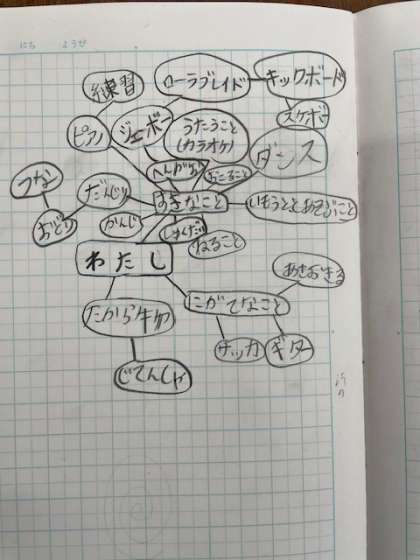 にち ようび
練習
ローラブレイド
キックボード
スケボー
ピアノ
ジェーボー
うたうこと
(カラオケ)
ダンス
へんがお
おこること
つな
だんじり
すきなこと
いもうととあそぶこと
おどり
かんじ
しゅくだい
ねること
わたし
あさおきる
にがてなこと
たからもの
サッカー
ギター
じてんしゃ